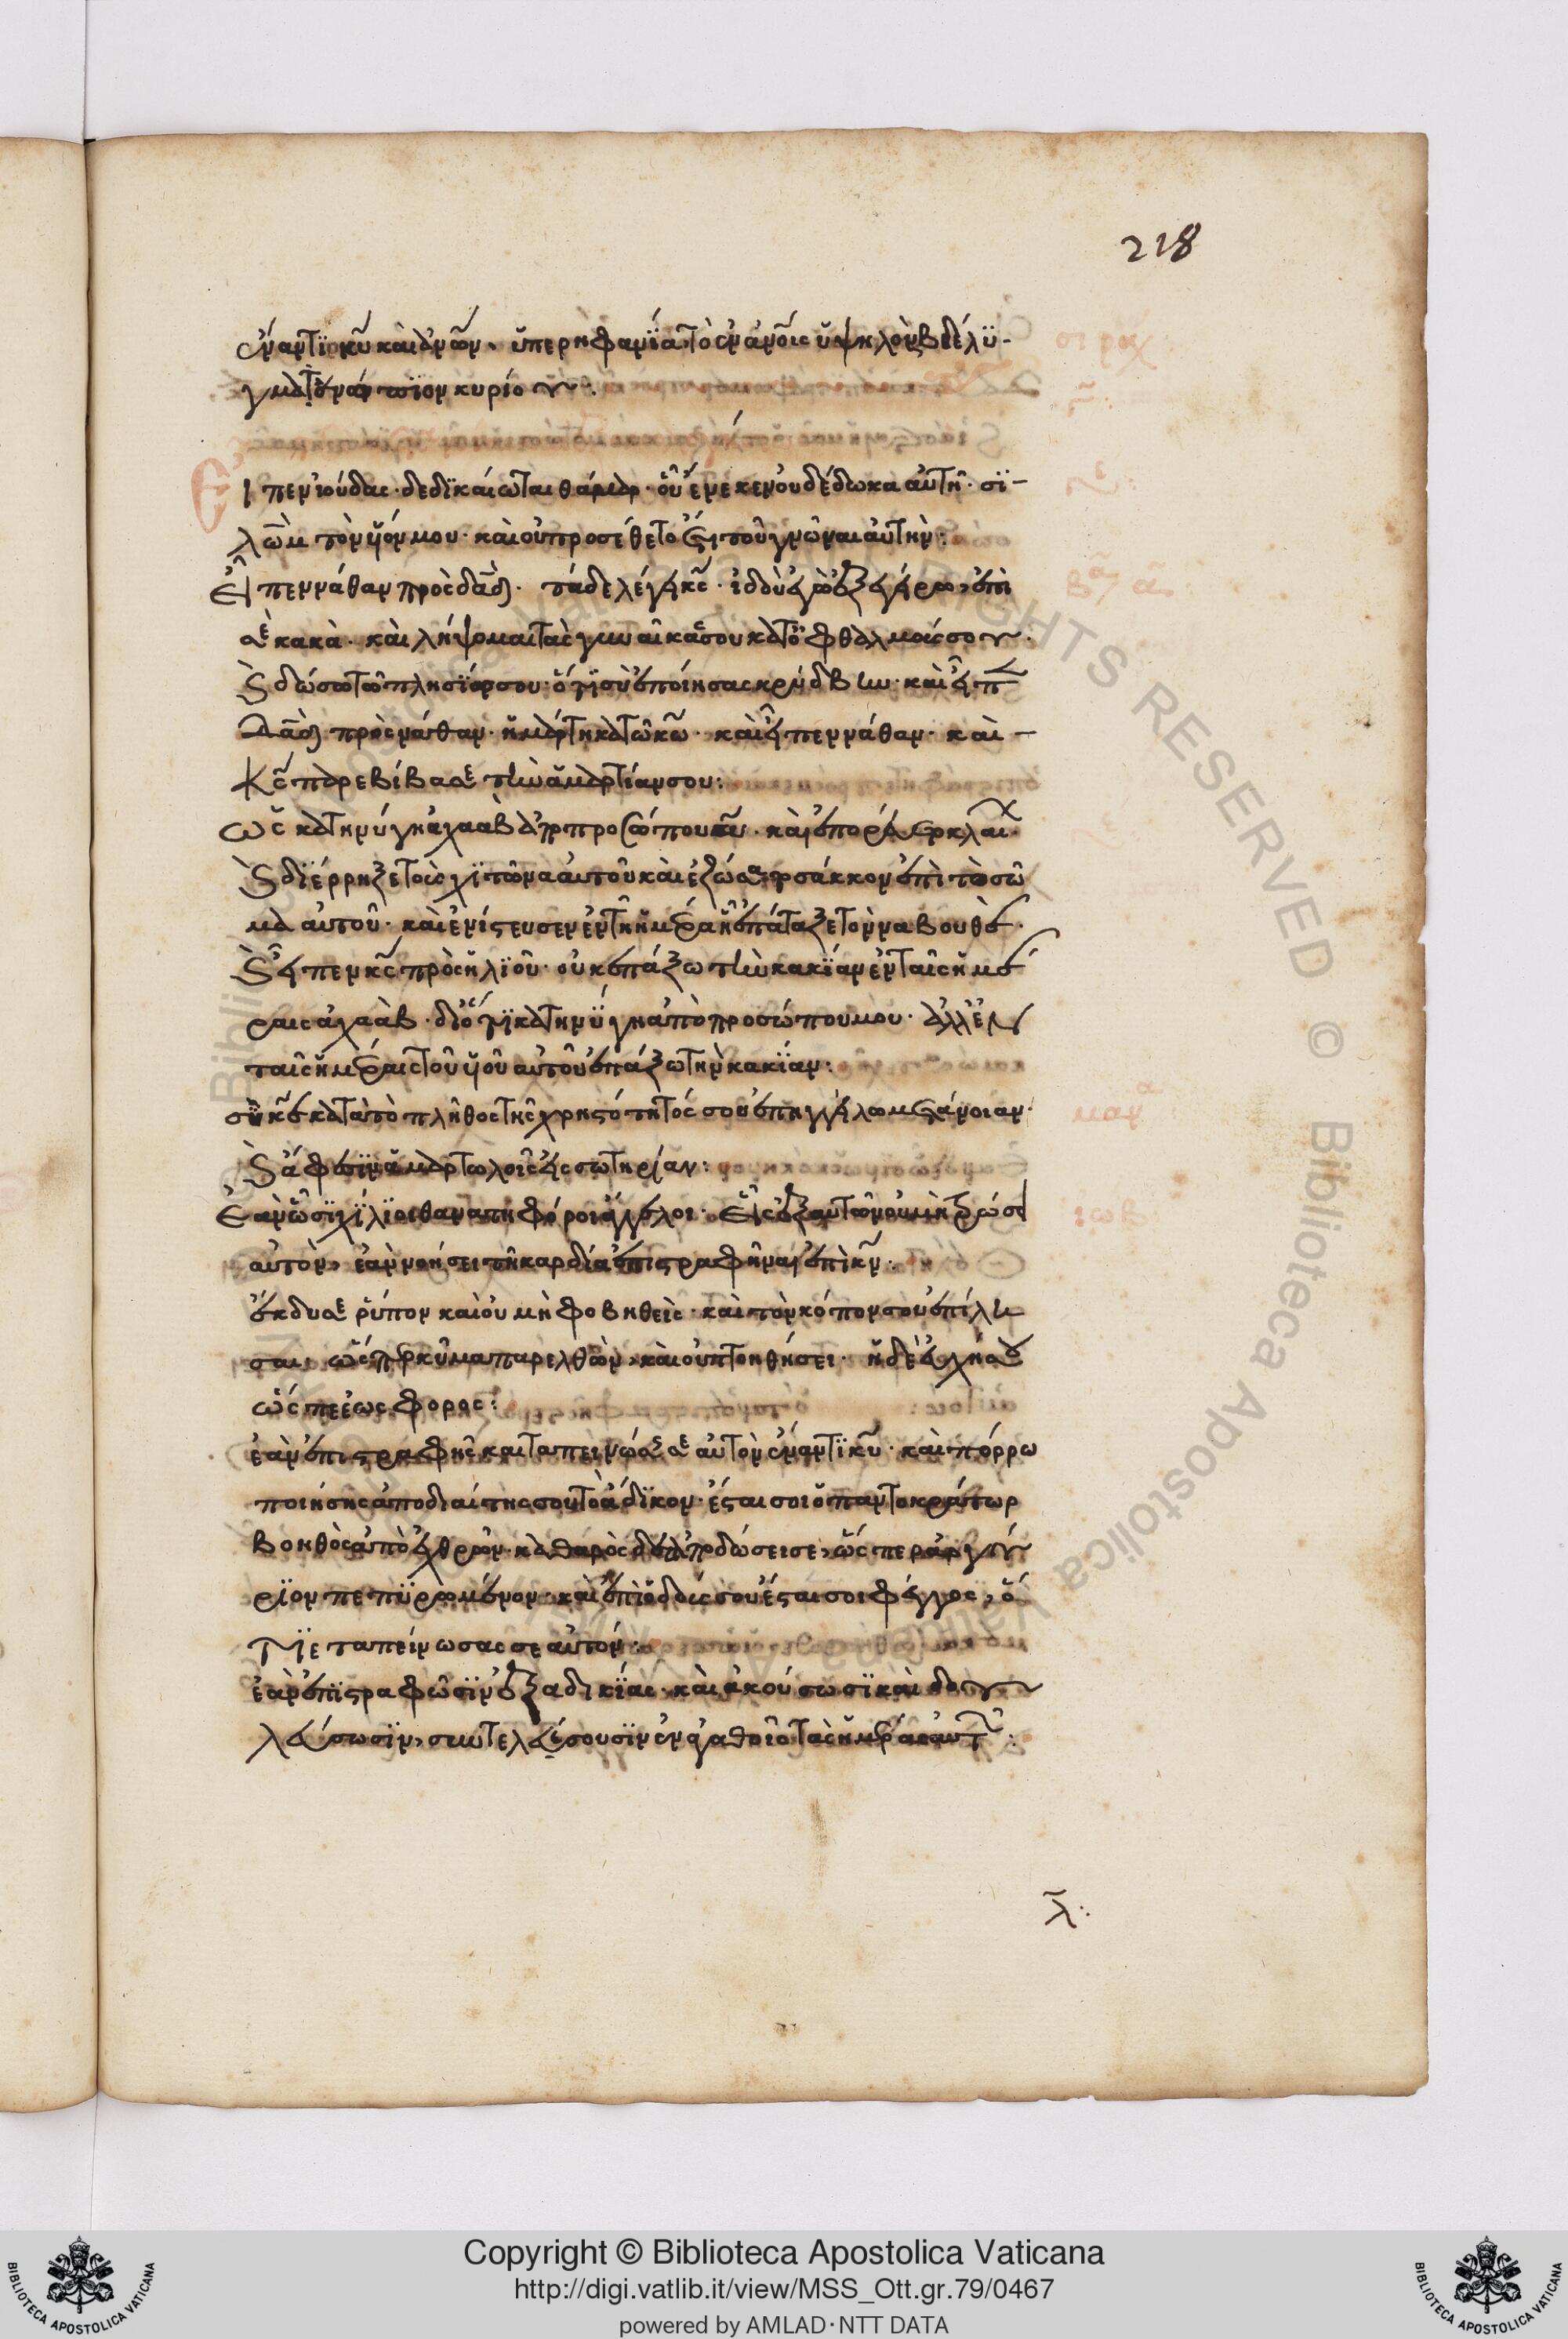 218
σιραχ
ἔναντι κυ καὶ ἀνων· ὑπερηφανία· τὸ ἐν ἀνοις ὑψηλὸν βδέλυ-
γμα ἐνώπιον κυρίου:
Εἶπεν ἰούδας· δεδικαίωται θάμαρ· οὗ ἕνεκεν οὐ δέδωκα αὐτῆ· σι-
λῶμ τὸν υἱόν μου· καὶ οὐ προσέθετο ἔτι τοῦ γνῶναι αὐτήν:
Εἶπεν νάθαν πρὸς δαδ· τάδε λέγει κς· ἰδοὺ ἐγὼ ἐξεγείρω, ἐπὶ
σὲ κακὰ· καὶ λήψομαι τὰς γυναῖκάς σου κατ' ὀφθαλμούς σου·
καὶ δώσω τῶ πλησίον σου· ὅτι σὺ ἐποίησας κρύβδην· καὶ εἶπ
δαδ πρὸς νάθαν· ἡμάρτηκα τῶ κω· καὶ εἶπεν νάθαν· καὶ
κς παρεβίβασε τὴν ἁμαρτίαν σου:
ὡς κατηνύγη ἀχαὰβ ἀπὸ προσώπου κυ· καὶ ἐπορεύετο κλαίων
καὶ διέρρηξε τὸν χιτῶνα αὐτοῦ καὶ ἐζώσατο σάκκον ἐπὶ τὸ σῶ
μα αὐτοῦ· καὶ ἐνίστευσεν ἐν τῆ ἡμέρα ἧ ἐπάταξε τὸν ναβουθέ·
καὶ εἶπεν κς πρὸς ἠλιοῦ· οὐκ ἐπάξω τὴν κακίαν ἐν ταῖς ἡμέ
ραις ἀχαὰβ· διότι κατηνύγη ἀπὸ προσώπου μου· ἀλλ' ἐν
ταῖς ἡμέραις τοῦ υἱοῦ αὐτοῦ ἐπάξω τὴν κακίαν:
σὺ κε κατὰ τὸ πλῆθος τῆς χρηστότητός σου ἐπηγγείλω μετάνοιαν·
μαν
καὶ ἄφεσιν ἁμαρτωλοῖς εἰς σωτηρίαν:
Ἐὰν ὦσι χίλιοι θανατηφόροι ἄγγελοι· εἷς ἐξ αὐτῶν οὐ μὴ τρώση
ιωβ
αὐτὸν, ἐὰν νοήσει τῆ καρδία ἐπιστραφῆναι ἐπὶ κν:
ἔκδυσε ῥύπον καὶ οὐ μὴ φοβηθεὶς· καὶ τὸν κόπον σου ἐπιλή
σαι, ὥσπερ κῦμα παρελθὸν, καὶ οὐ πτοηθήσει· ἡ δὲ εὐχή σου
ὥσπερ ἑωσφόρος:
ἐὰν ἐπιστραφῆς καὶ ταπεινώσης σεαυτὸν ἔναντι κυ· καὶ πόρρω
ποιήσης ἀπὸ διαίτης σου τὸ ἄδικον· ἔσται σοι ὁ παντοκράτωρ
βοηθὸς ἀπὸ ἐχθρῶν· καθαρὸς δὲ ἀποδώσει σε, ὥσπερ ἀργύ
ριον πεπυρωμένον· καὶ ἐπὶ ὁδοῖς σου ἔσται σοι φέγγος, ὅ
τι ἐταπείνωσας σεαυτόν:
ἐὰν ἐπιστραφῶσιν ἐξ ἀδικίας· καὶ ἀκούσωσι καὶ δου
λεύσωσιν, συντελέσουσιν ἐν ἀγαθοῖς τὰς ἡμέρας αὐτῶν:
λ:
Copyright © Biblioteca Apostolica Vaticana
http://digi.vatlib.it/view/MSS_Ott.gr.79/0467
powered by AMLAD·NTT DATA